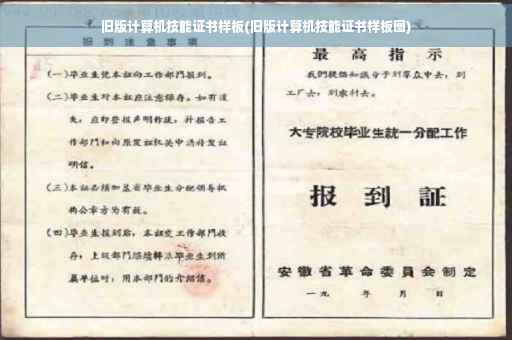 旧版计算机技能证书样板(旧版计算机技能证书样板图)
报到注意事项
(一)毕业生凭本证向工作部门报到。
(二)毕业生对本证应注意保存。如有遗
失,应即登报声明作废,并报告工
作部门和向原发证机关申请补发证
明信。
(三)本证必须加盖省毕业生分配领导机
构公章方为有效。
(四)毕业生报到后,本证交工作部门收
存;上级部门继续转派毕业生到所
属单位时,用本部门的介绍信。
最高指示
我们提倡知识分子到群众中去,到
工厂去,到农村去。
大专院校毕业生統一分配工作
报到証
安徽省革命委員会制定
一九 年 月 日